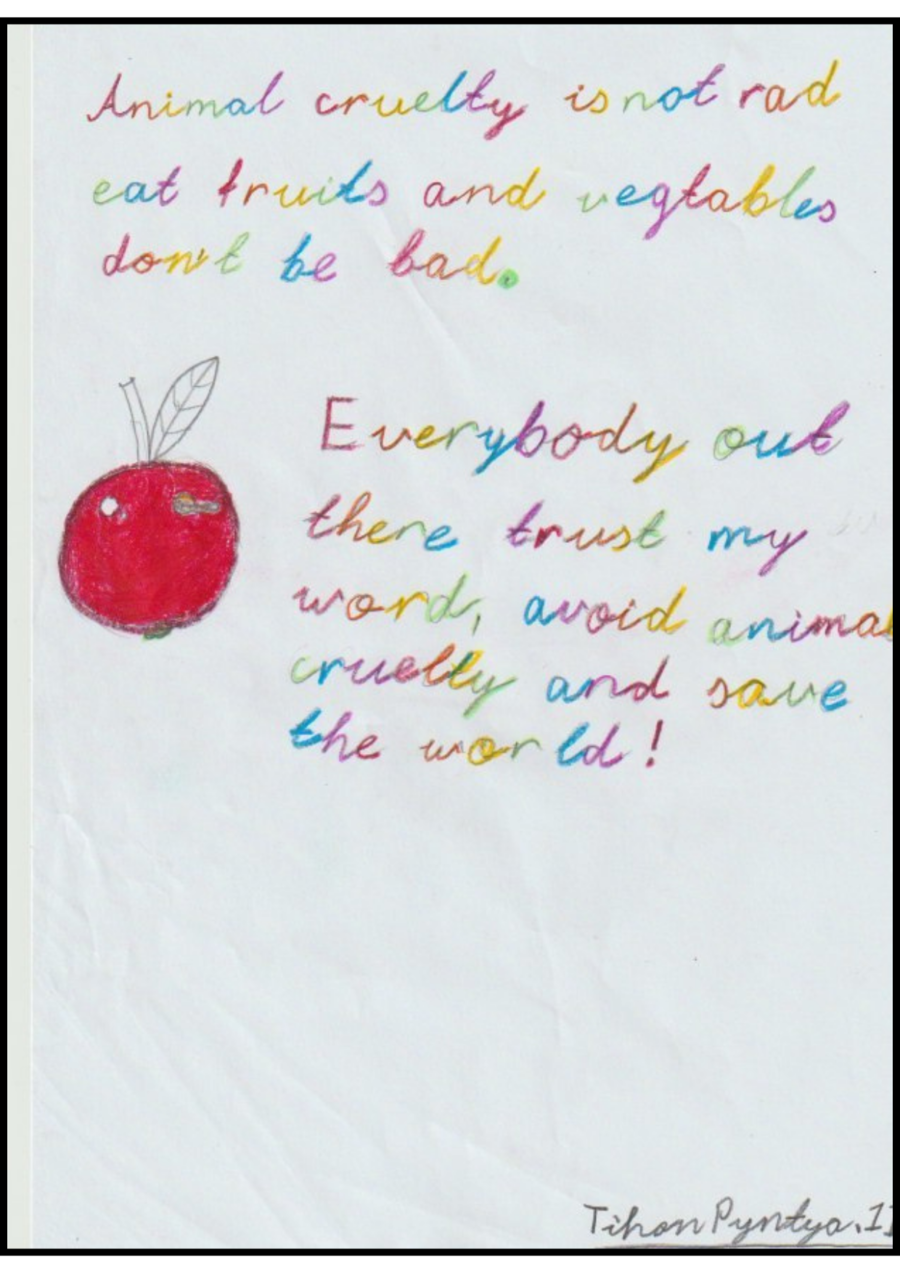 Animal cruelty is not rad
eat fruits and vegtables
don't be bad.
Everybody out
there trust my
word, avoid animal
cruelty and save
the world!
Tihon Pyntya. 11